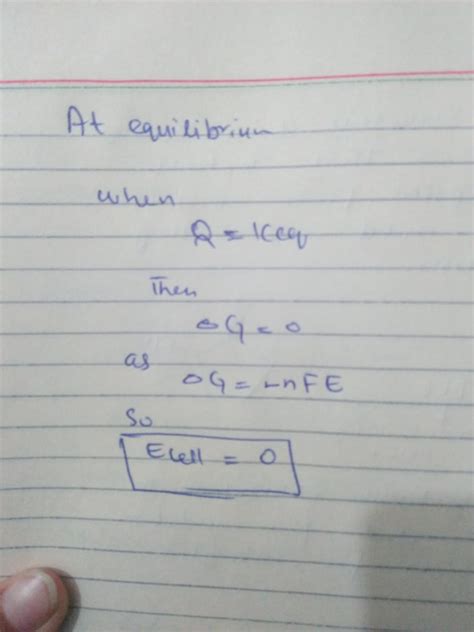 At equilibrium
when
Q = Keq
Then
ΔG = 0
as
ΔG = -nFE
So
Ecell = 0